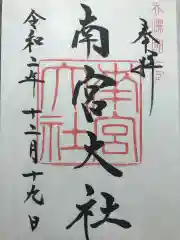 奉拝
南宮大社
令和二年十二月十九日
南宮大社